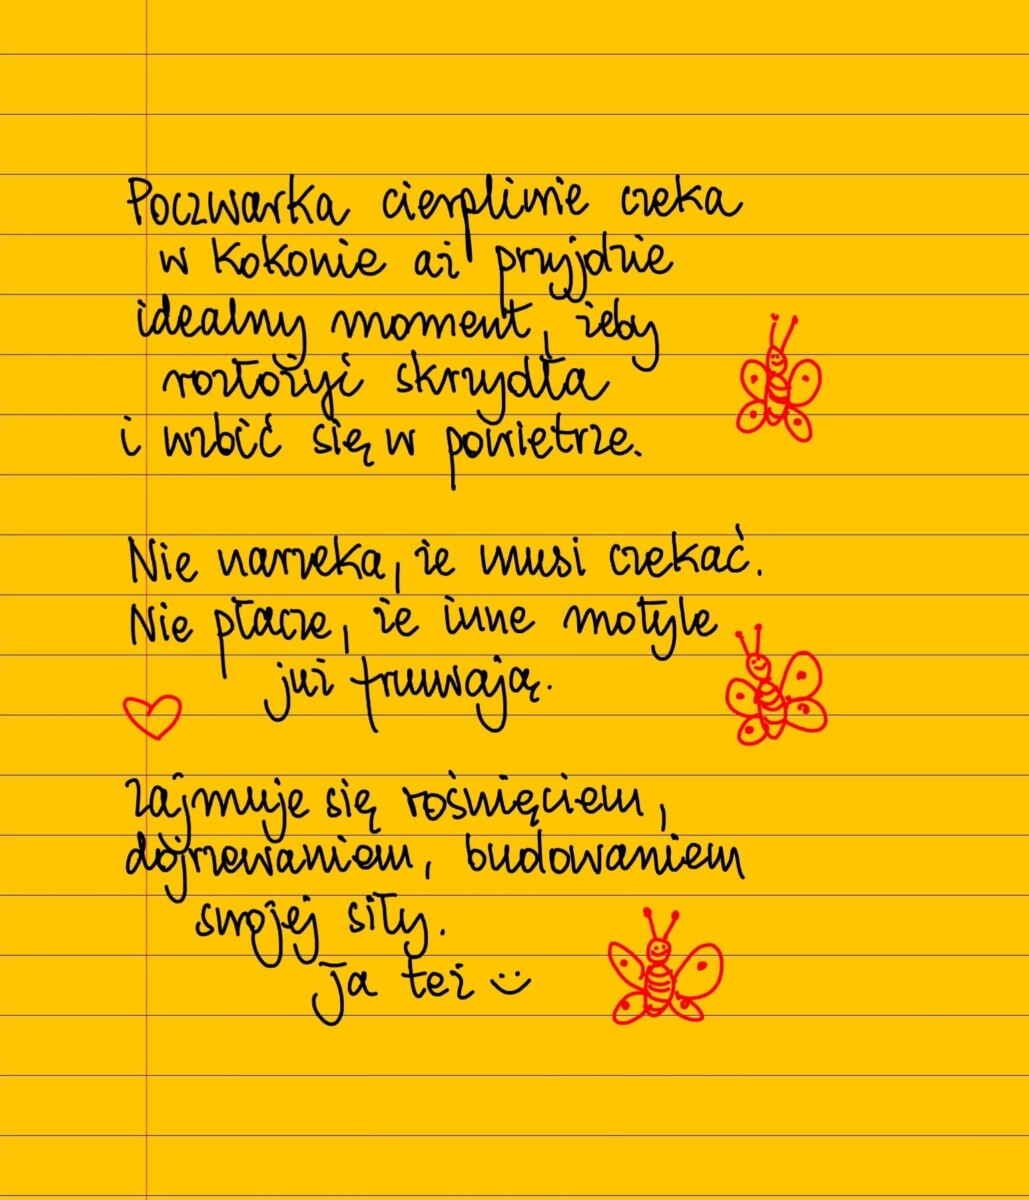 Poczwarka cierpliwie czeka
w kokonie aż przyjdzie
idealny moment, żeby
rozłożyć skrzydła
i wzbić się w powietrze.
Nie narzeka, że musi czekać.
Nie płacze, że inne motyle
już fruwają.
Zajmuje się rośnięciem,
dojrzewaniem, budowaniem
swojej siły.
Ja też :)